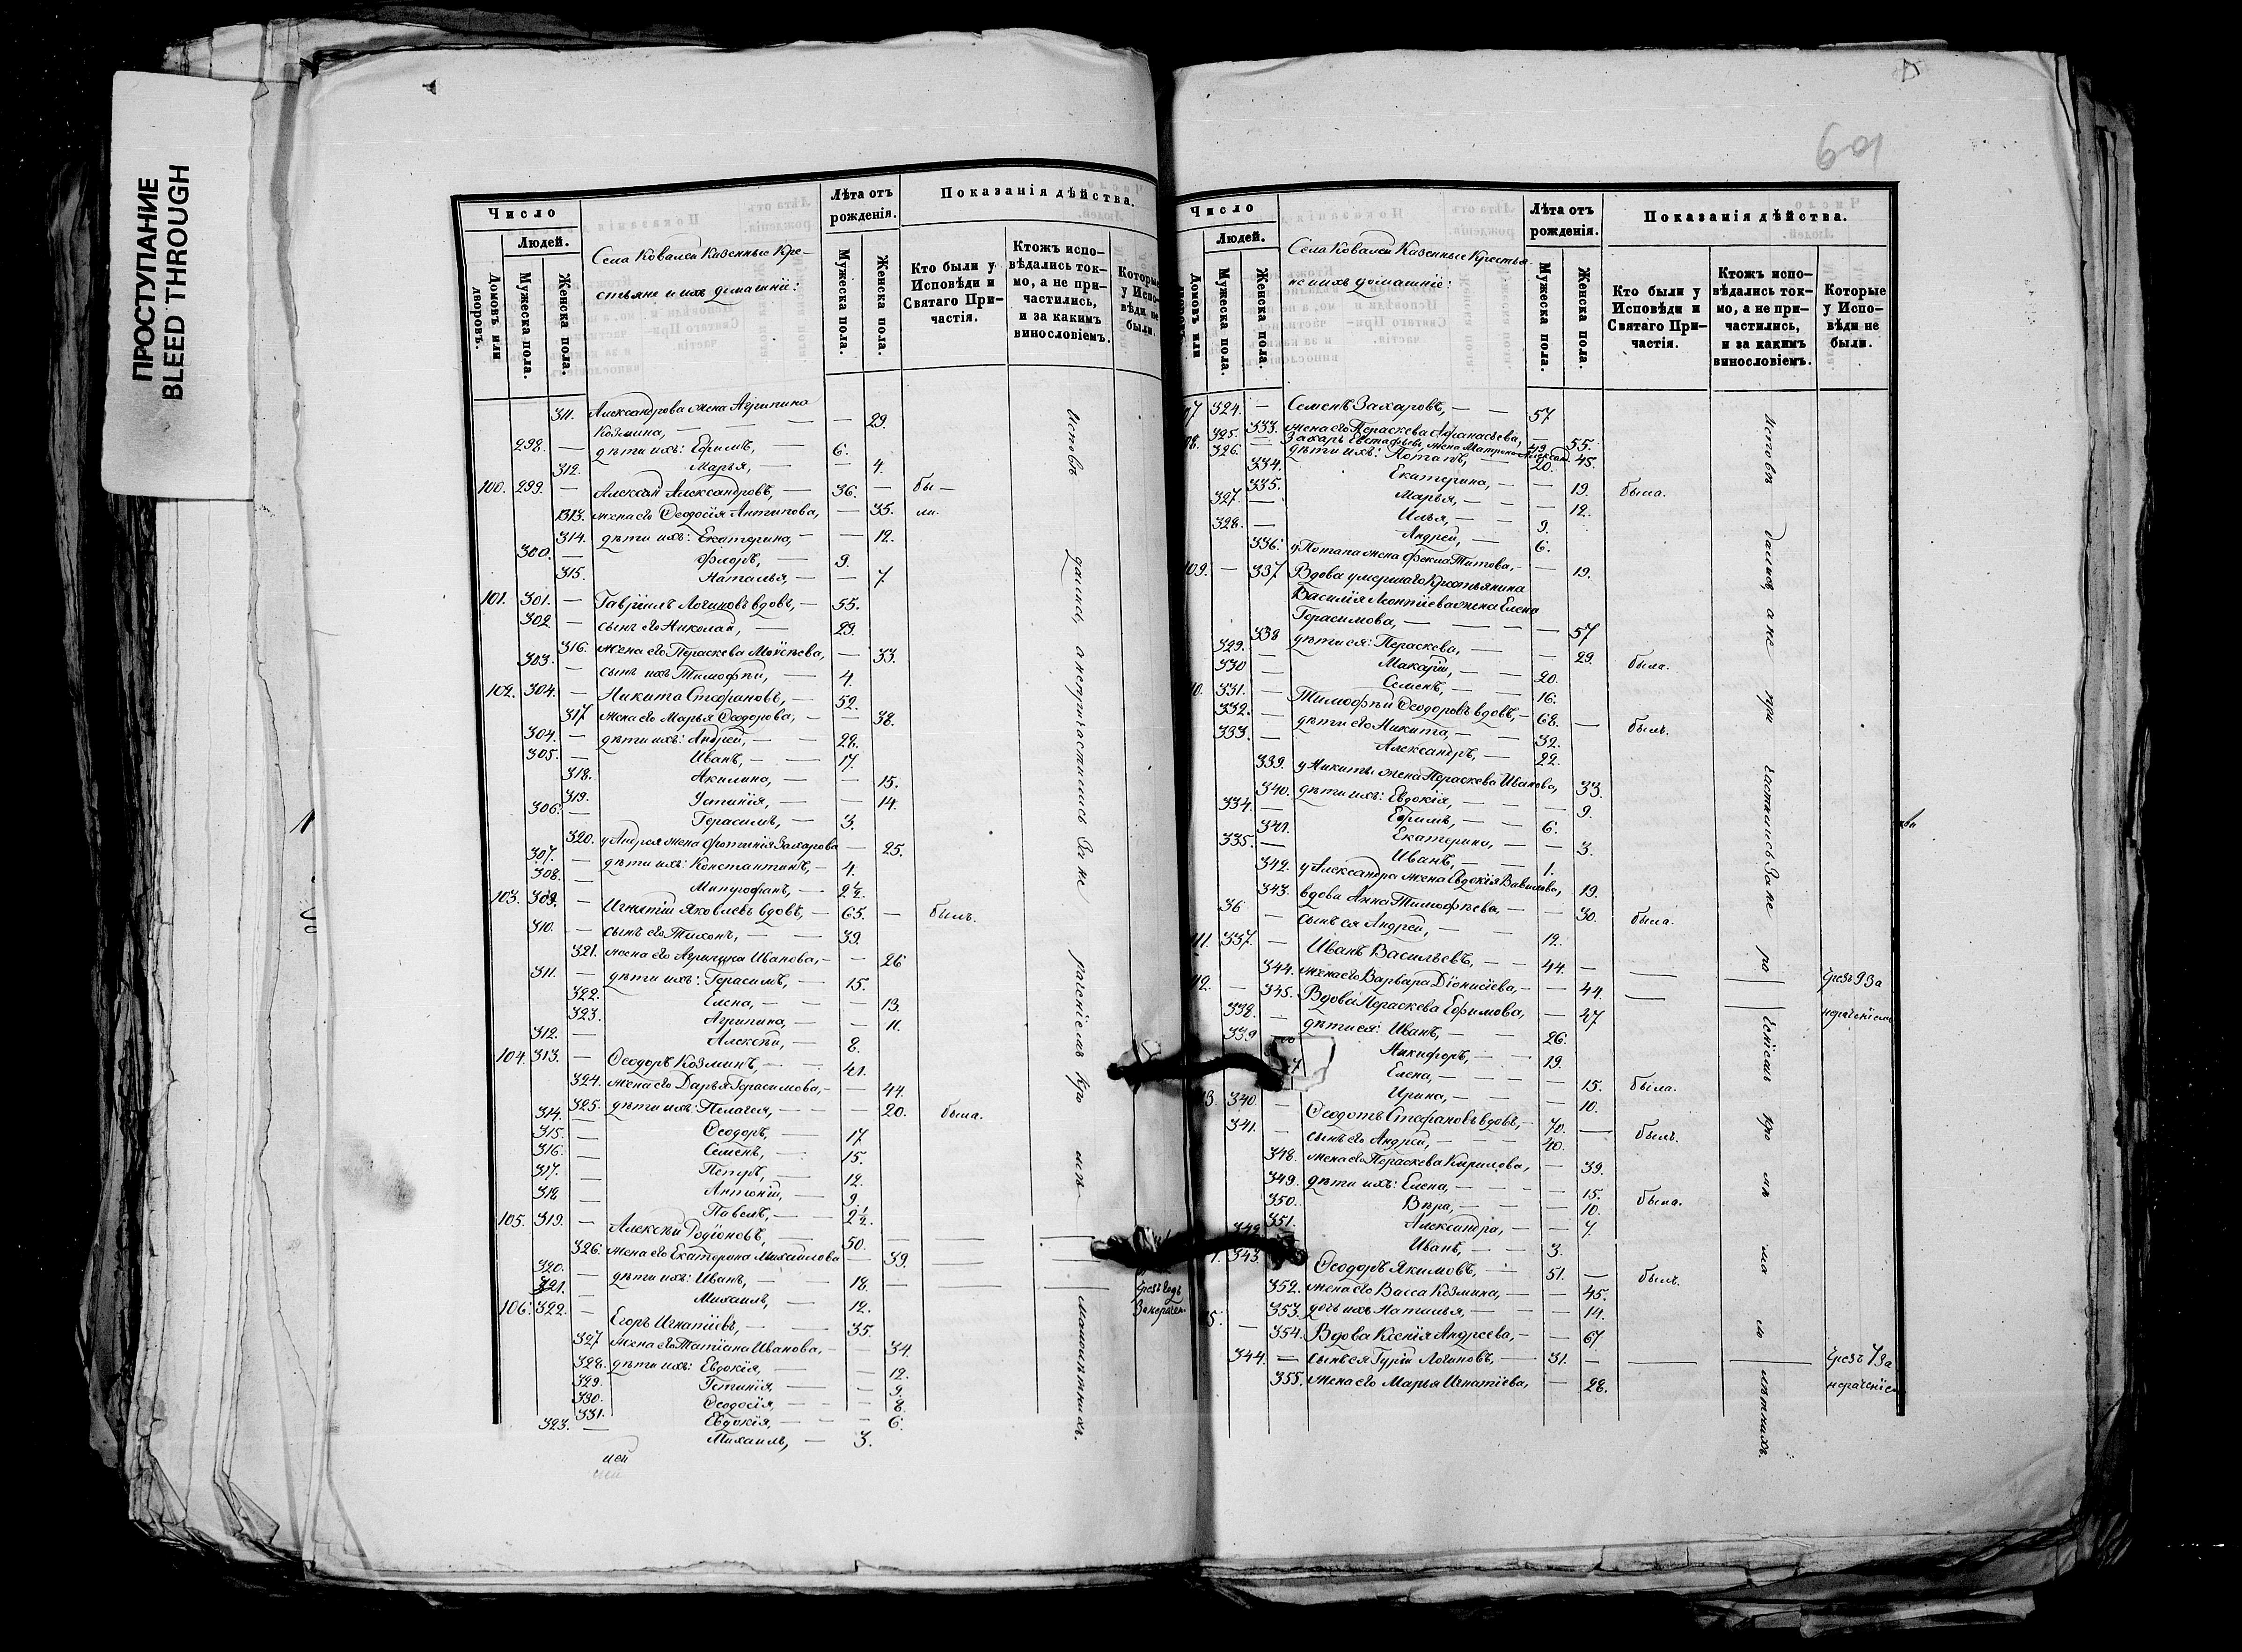 ПРОСТУПАНИЕ
BLEED THROUGH
Число
Людей.
Домовъ или дворовъ.
Мужеска пола.
Женска пола.
Села Ковалей Казенные Кре-
стьяне и ихъ домашніе:
Лѣта отъ рожденія.
Мужеска пола.
Женска пола.
Показанія дѣйства.
Кто были у Исповѣди и Святаго При-частія.
Ктожъ испо-вѣдались ток-мо, а не при-частились, и за какимъ винословіемъ.
Которые у Испо-вѣди не были.
311. Александрова жена Агрипина
Козмина, — 29.
298. — дѣти ихъ: Ефимъ, — 6.
312. Марья, — 4.
100. 299. — Алексѣй Александровъ, — 36. — бы —
313. жена его Ѳеодосія Антипова, — 35. ли.
314. дѣти ихъ: Екатерина, — 12.
300. — Флоръ, — 9.
315. Наталья, — 7.
101. 301. — Гавріилъ Логиновъ вдовъ, — 55.
302 — сынъ его Николай, — 29.
316. жена его Пераскева Моѵсѣева, — 33.
303. — сынъ ихъ Тимофѣй, — 4.
102. 304. — Никита Стефановъ, — 52.
317 жена его Марья Ѳеодорова, — 38.
304. — дѣти ихъ: Андрей, — 28.
305. — Иванъ, — 17.
318. Акилина, — 15.
319. Устинія, — 14.
306. — Герасимъ, — 3.
320. у Андрея жена Фотинія Захарова — 25.
307. — дѣти ихъ: Константинъ, — 4.
308. — Митрофанъ, — 2½.
103. 309. — Игнатій Яковлевъ вдовъ, — 65. — былъ.
310. — сынъ его Тихонъ, — 39.
321. жена его Агрипина Иванова, — 26
311. — дѣти ихъ: Герасимъ, — 15.
322. Елена, — 13.
323. Агрипина, — 11.
312. — Алексѣй, — 8.
104. 313. — Ѳеодоръ Козминъ, — 41.
324. жена его Дарья Герасимова, — 44.
325. дѣти ихъ: Пелагея, — 20. была.
314. — Ѳеодоръ, — 17
315. — Семенъ, — 15.
316. — Петръ, — 12.
317. — Антоній, — 9.
318 — Павелъ, — 2½.
105. 319. — Алексѣй Родіоновъ, — 50. —
326. жена его Екатерина Михайлова — 39. —
320. — дѣти ихъ: Иванъ, — 18. —
321. — Михаилъ, — 12.
106. 322. — Егоръ Игнатіевъ, — 35.
327 жена его Татіана Иванова, — 34.
328. дѣти ихъ: Евдокія, — 12.
329. — 9.
330. Ѳеодосія, — 8.
331. Евдокія, — 6.
323. — Михаилъ, — 3.
Исповѣдались, а не причастились за не раченіемъ кромѣ малолѣтнихъ.
чрезъ годъ
За нерачен.
601
Число
Людей.
Домовъ или дворовъ.
Мужеска пола.
Женска пола.
Села Ковалей Казенные Крестья-
не и ихъ домашніе:
Лѣта отъ рожденія.
Мужеска пола.
Женска пола.
Показанія дѣйства.
Кто были у Исповѣди и Святаго При-частія.
Ктожъ испо-вѣдались ток-мо, а не при-частились, и за какимъ винословіемъ.
Которые у Испо-вѣди не были.
324. — Семенъ Захаровъ, — 57
333. жена его Пераскева Афанасьева, — 55.
325. — Захаръ Евстафіевъ, жена Матрона 49. 45.
326. дѣти ихъ: Потапъ, — 20.
334. Екатерина, — 19. была.
335. Марья, — 12.
327. — Илья, — 9.
328. — Андрей, — 6.
336. у Потапа жена Фекла Титова, — 19.
109. — 337 Вдова умершаго Крестьянина
Василія Леонтіева жена Елена
Герасимова, — 57
338 дѣти ея: Пераскева, — 29. была.
329. — Макарій, — 20.
330 — Семенъ, — 16.
331. — Тимофѣй Ѳеодоровъ вдовъ, — 68. — былъ.
332. — дѣти его Никита, — 32.
333. — Александръ, — 22.
339. у Никиты жена Пераскева Иванова, 33.
340. дѣти ихъ: Евдокія, — 9.
334. — Ефимъ, — 6.
341. Екатерина, — 3.
335. — Иванъ, — 1.
342. у Александра жена Евдокія Вавилова, 19.
343. вдова Анна Тимофѣева, — 30. была.
36 — сынъ ея Андрей, — 12.
337. — Иванъ Васильевъ, — 44. —
344. жена его Варвара Діонисіева, — 44. — чрезъ 9 За
345. Вдова Пераскева Ефимова, — 47 нераченіемъ
338. — дѣти ея: Иванъ, — 26.
339 Никифоръ, — 19.
Елена, — 15. была.
Ирина, — 10.
340. — Ѳеодотъ Стефановъ вдовъ, — 70. — былъ.
341. — сынъ его Андрей, — 40.
348. жена его Пераскева Кирилова, — 39.
349. дѣти ихъ: Елена, — 15.
350. Вѣра, — 10. была.
351. Александра, — 7.
342 Иванъ, — 3.
343 Ѳеодоръ Якимовъ, — 51. — былъ.
352. жена его Васса Козмина, — 45.
353. дочь ихъ Наталья, — 14.
— 354. Вдова Ксенія Андреева, — 67.
344. — сынъ ея Гурій Логиновъ, — 31. — чрезъ 7 За
355. жена его Марья Игнатіева, — 28. нераченіем
Исповѣдались, а не причастились за не раченіемъ кромѣ малолѣтнихъ.